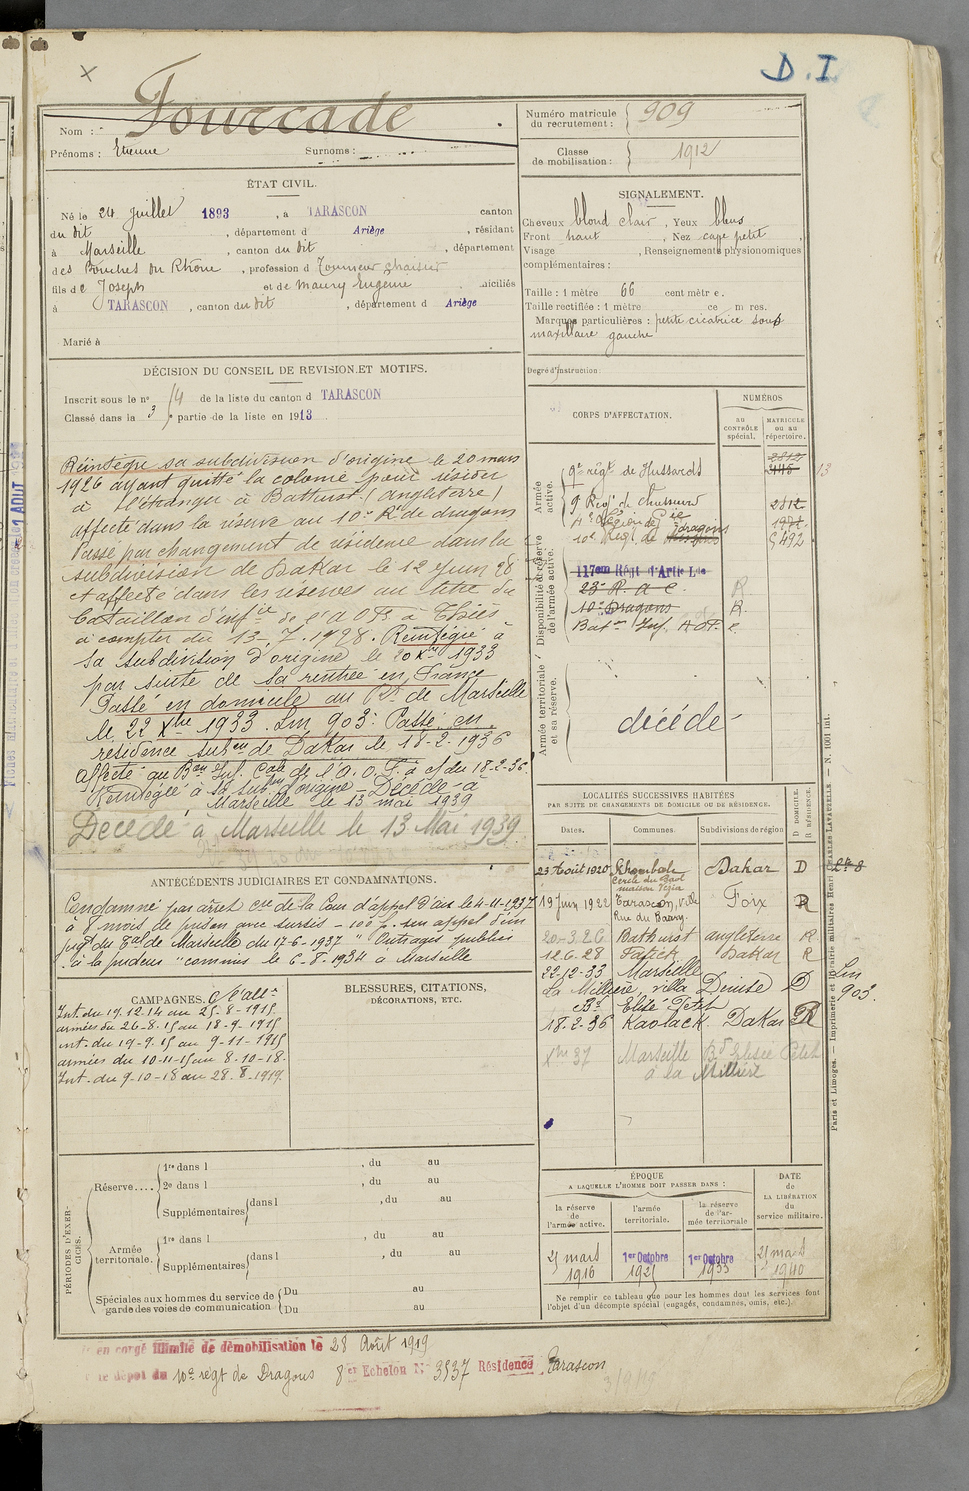 D.I.
Fourcade
Nom :
Prénoms : Etienne Surnoms :
Numéro matricule du recrutement : 909
Classe de mobilisation : 1912
ÉTAT CIVIL.
Né le 24 Juillet 1893, à TARASCON canton
du dit, département d Ariège, résidant
à Marseille, canton du dit, département
des Bouches du Rhône, profession d Tourneur chaisier
fils de Joseph et de Maury Eugénie miciliés
à TARASCON, canton du dit, département d Ariège
Marié à
SIGNALEMENT.
Cheveux blond clair, Yeux bleus
Front haut, Nez cave petit,
Visage , Renseignements physionomiques
complémentaires :
Taille : 1 mètre 66 centimètre.
Taille rectifiée : 1 mètre ce m res.
Marques particulières : petite cicatrice sous
maxillaire gauche
Degré d'instruction :
DÉCISION DU CONSEIL DE REVISION ET MOTIFS.
Inscrit sous le n° 14 de la liste du canton d TARASCON
Classé dans la 3e partie de la liste en 1913
Réintègre sa subdivision d'origine le 20 mars
1926 ayant quitté la colonie pour résider
à l'étranger à Bathurst (angleterre)
affecté dans la réserve au 10e Rt de dragons
Passé par changement de résidence dans la
subdivision de Dakar le 12 Juin 28
et affecté dans les réserves au titre du
bataillon d'inf ie de l'A.O.F. à Thiès
à compter du 13-7-1928. Réintégré à
sa subdivision d'origine le 20 Xbre 1933
par suite de sa rentrée en France
Passé en domicile au Bau de Marseille
le 22 Xbre 1933. Lm 903. Passé en
résidence subon de Dakar le 18-2-1936
affecté au Bon Inf. Cale de l'A.O.F. à c/ du 18-2-36.
Réintégré à sa subon d'origine - Décédé à
Marseille le 13 mai 1939
Décédé à Marseille le 13 Mai 1939
CORPS D'AFFECTATION.
NUMÉROS
AU CONTRÔLE spécial.
MATRICULE ou au répertoire.
Armée active.
9e régt de Hussards
9 Regt de chasseurs 2812
10e Regt de dragons G 492
Disponibilité et réserve de l'armée active.
117eme Régt d'Artie Lde
23e R. a C. R
10e Dragons R.
Baton Inf. AOF. C.
Armée territoriale et sa réserve.
décédé
LOCALITÉS SUCCESSIVES HABITÉES
PAR SUITE DE CHANGEMENTS DE DOMICILE OU DE RÉSIDENCE.
Dates. Communes. Subdivisions de région D DOMICILE. R RÉSIDENCE.
23 Août 1920 Khombole Dakar D
Cercle du Baol
maison Vezia
19 Juin 1922 Tarascon, ville Foix R
Rue du Barry.
20-3.26 Bathurst angleterre R
12.6.28 Fatick Dakar R
22-12-33 Marseille
La Millière, villa Denise D Lm 903.
Bd Elisé Petit
18-2-36 Kaolack. Dakar R
Xbre 37 Marseille Bd Elisée Petit
à la Millière
ANTÉCÉDENTS JUDICIAIRES ET CONDAMNATIONS.
Condamné par arrêt cre de la Cour d'appel d'aix le 4-11-1937
à 8 mois de prison avec sursis - 100 f. sur appel d'un
jugt du Bal de Marseille du 17-6-1937 " Outrages publics
à la pudeur " commis le 6-8-1934 à Marseille
CAMPAGNES. C/ l'allne
Int. du 19.12.14 au 25-8-1915
armées du 26-8-15 au 18-9-1915
int. du 19-9-15 au 9-11-1915
armées du 10-11-15 au 8-10-18.
Int. du 9-10-18 au 28-8-1919.
BLESSURES, CITATIONS,
DÉCORATIONS, ETC.
PÉRIODES D'EXERCICES.
Réserve.... 1re dans l , du au
2e dans l , du au
Supplémentaires dans l , du au
Armée territoriale. 1re dans l , du au
Supplémentaires dans l , du au
Spéciales aux hommes du service de garde des voies de communication Du au
Du au
ÉPOQUE
A LAQUELLE L'HOMME DOIT PASSER DANS :
la réserve de l'armée active.
l'armée territoriale.
la réserve de l'armée territoriale
DATE de LA LIBÉRATION du service militaire.
21 mars 1916
1er Octobre 1925
1er Octobre 1933
21 mars 1940
Ne remplir ce tableau que pour les hommes dont les services font
l'objet d'un décompte spécial (engagés, condamnés, omis, etc.).
en congé illimité de démobilisation le 28 Août 1919
le dépot du 10e régt de Dragons 8er Echelon N° 3537 Résidence Tarascon
Paris et Limoges. — Imprimerie et librairie militaires Henri CHARLES-LAVAUZELLE — N. 1001 int.